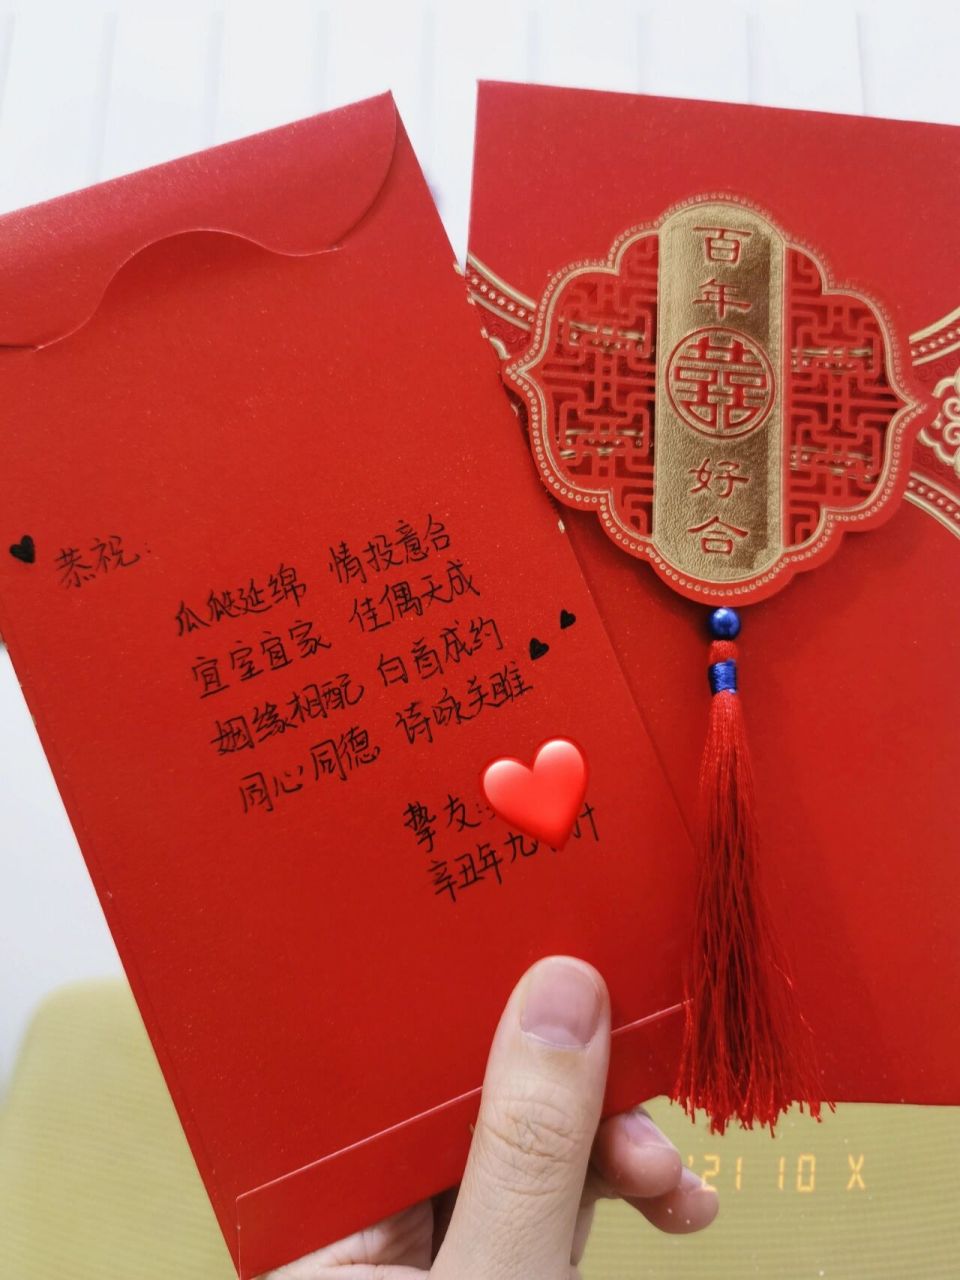 恭祝:
瓜瓞延绵 情投意合
宜室宜家 佳偶天成
姻缘相配 白首成约
同心同德 诗咏关雎
挚友:
辛丑年九
百年
囍
好合
'21 10 X